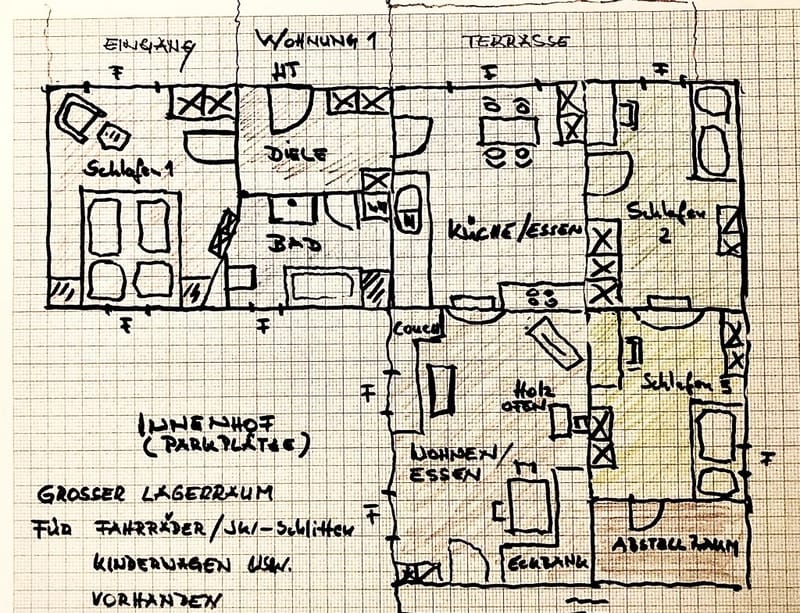 EINGANG
WOHNUNG 1
TERRASSE
F
HT
F
F
DIELE
Schlafen 1
Schlafen
2
BAD
KÜCHE/ESSEN
F
F
COUCH
F
Holz
OFEN
Schlafen 3
INNENHOF
(PARKPLÄTZE)
WOHNEN/
ESSEN
F
GROSSER LAGERRAUM
FÜR FAHRRÄDER/SKI-SCHLITTEN
KINDERWAGEN USW.
VORHANDEN
F
ABSTELLRAUM
ECKBANK